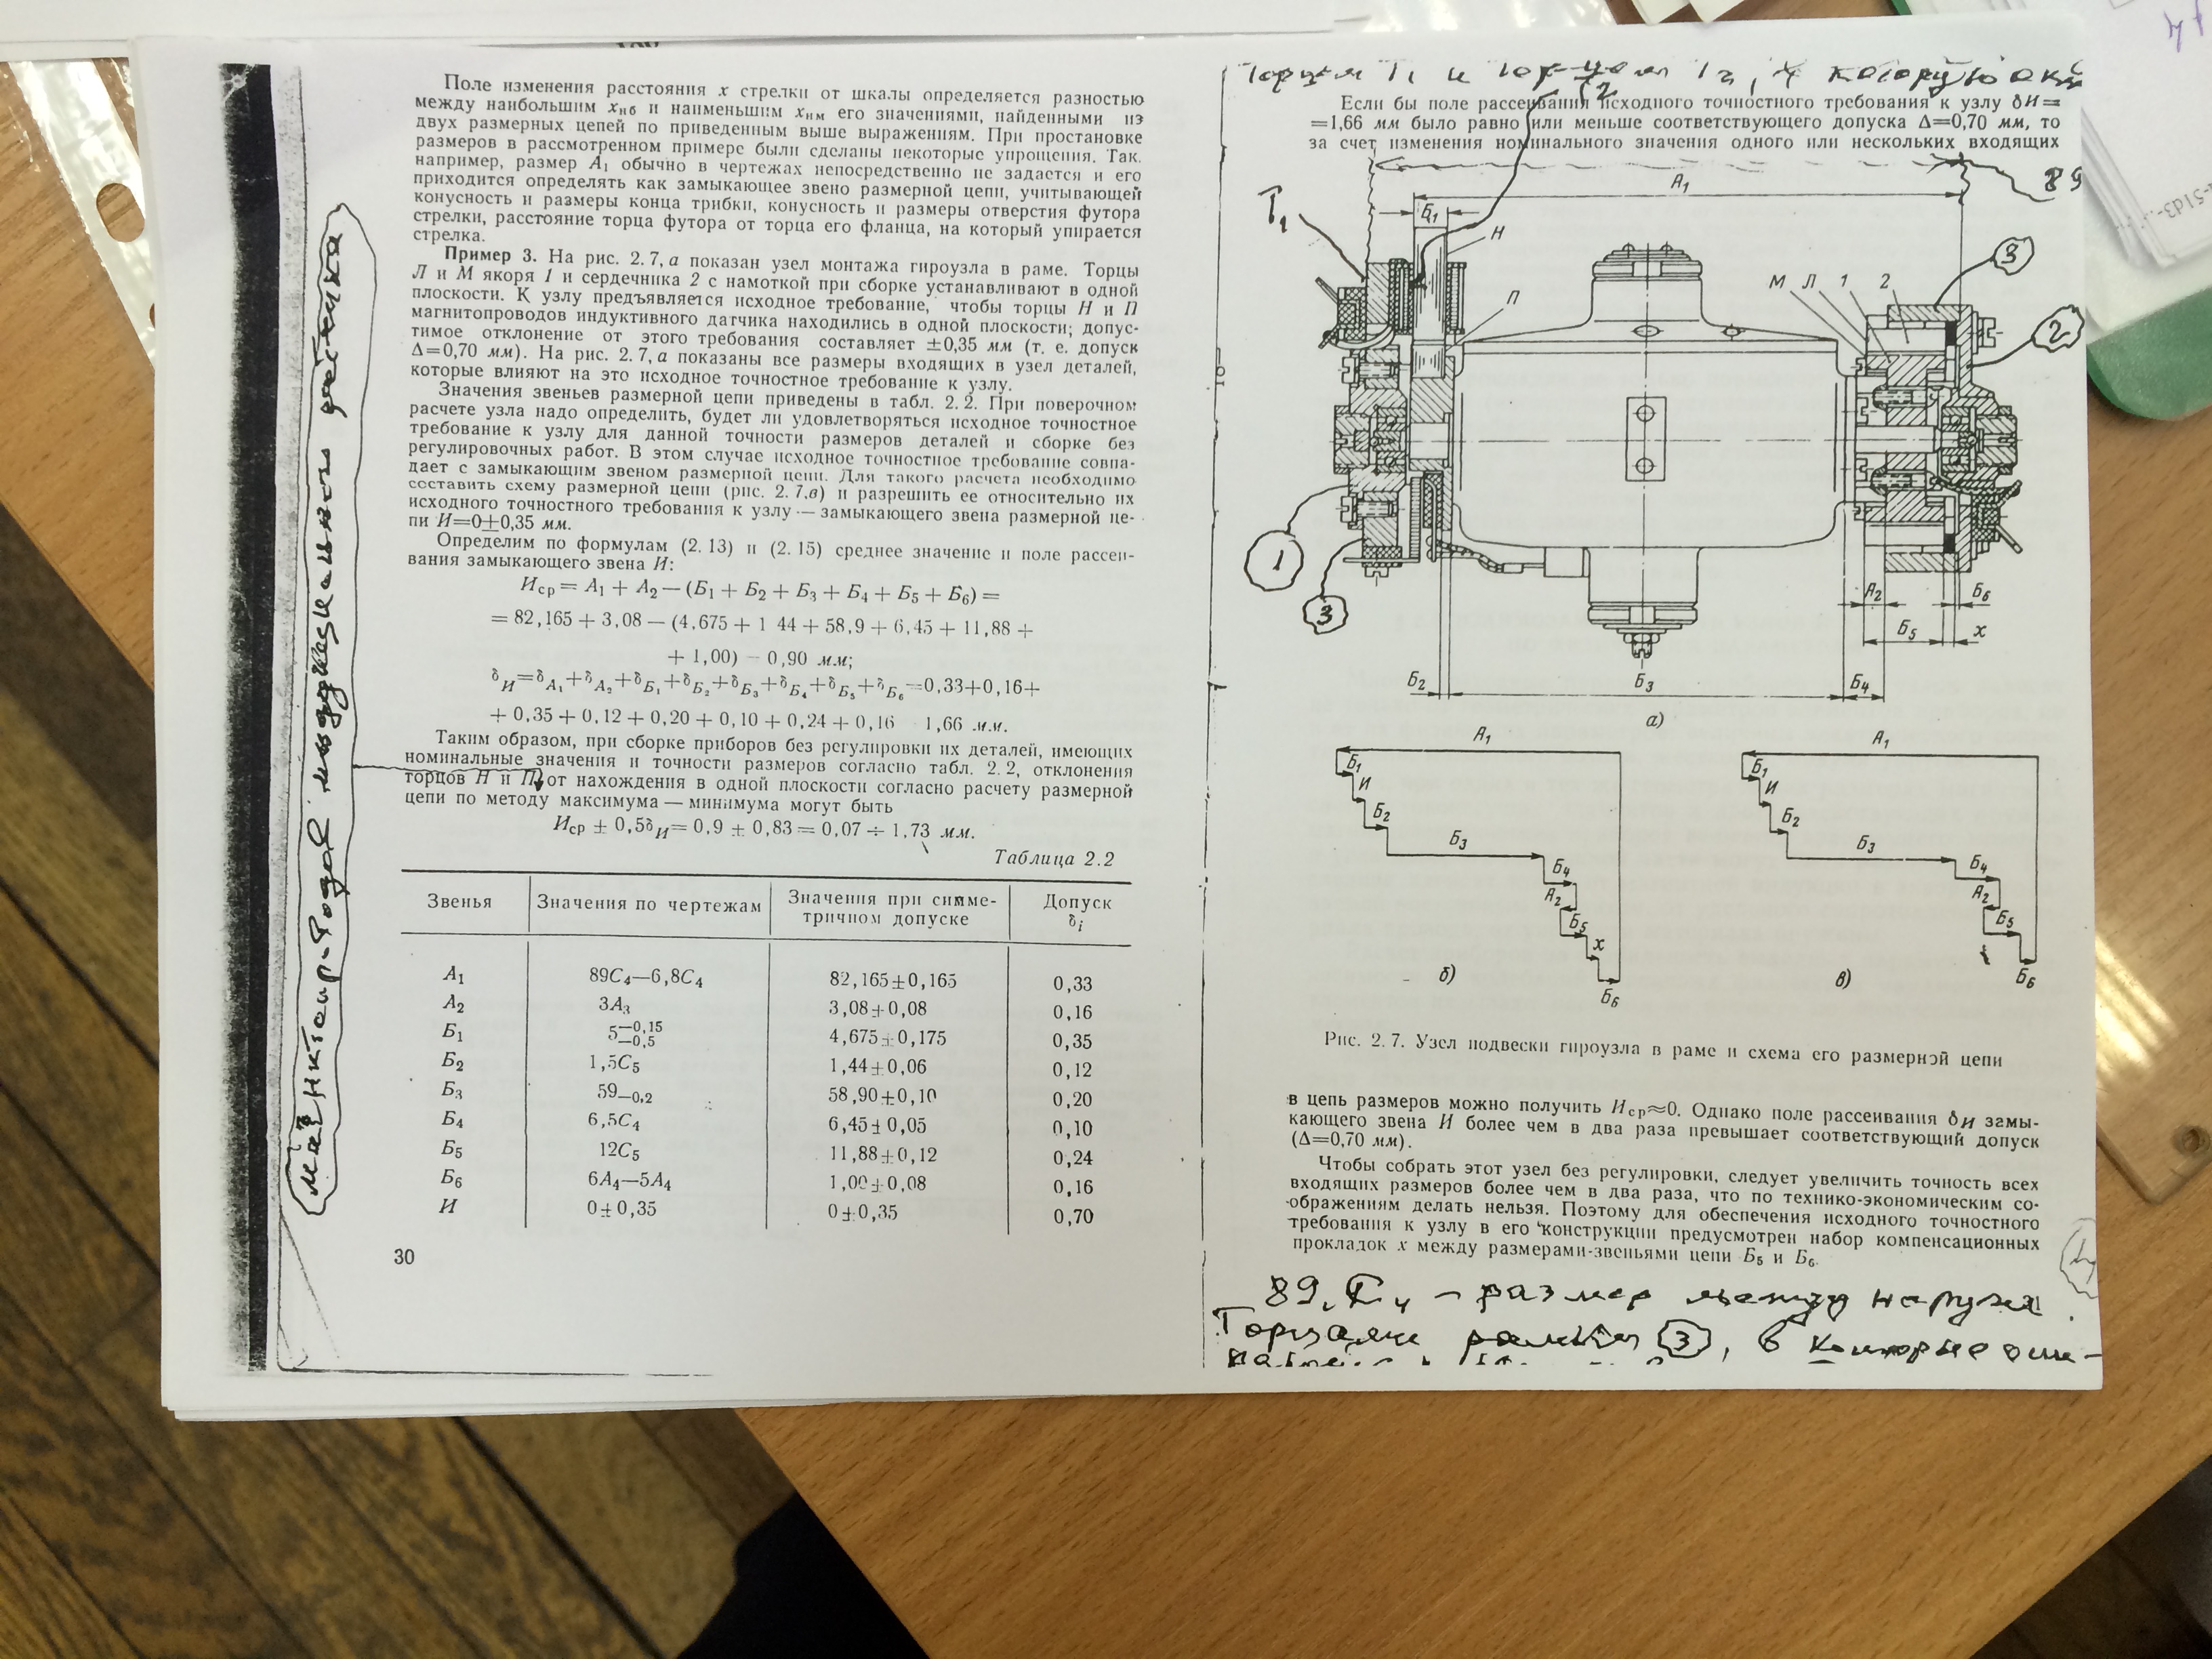 Поле изменения расстояния x стрелки от шкалы определяется разностью
между наибольшим xнб и наименьшим xнм его значениями, найденными из
двух размерных цепей по приведенным выше выражениям. При простановке
размеров в рассмотренном примере были сделаны некоторые упрощения. Так.
например, размер А₁ обычно в чертежах непосредственно не задается и его
приходится определять как замыкающее звено размерной цепи, учитывающей
конусность и размеры конца трибки, конусность и размеры отверстия футора
стрелки, расстояние торца футора от торца его фланца, на который упирается
стрелка.
Пример 3. На рис. 2.7, а показан узел монтажа гироузла в раме. Торцы
Л и М якоря 1 и сердечника 2 с намоткой при сборке устанавливают в одной
плоскости. К узлу предъявляется исходное требование, чтобы торцы Н и П
магнитопроводов индуктивного датчика находились в одной плоскости; допус-
тимое отклонение от этого требования составляет ±0,35 мм (т. е. допуск
Δ=0,70 мм). На рис. 2.7, а показаны все размеры входящих в узел деталей,
которые влияют на это исходное точностное требование к узлу.
Значения звеньев размерной цепи приведены в табл. 2.2. При поверочном
расчете узла надо определить, будет ли удовлетворяться исходное точностное
требование к узлу для данной точности размеров деталей и сборке без
регулировочных работ. В этом случае исходное точностное требование совпа-
дает с замыкающим звеном размерной цепи. Для такого расчета необходимо
составить схему размерной цепи (рис. 2.7,в) и разрешить ее относительно их
исходного точностного требования к узлу — замыкающего звена размерной це-
пи И=0±0,35 мм.
Определим по формулам (2.13) и (2.15) среднее значение и поле рассеи-
вания замыкающего звена И:
Иср = А₁ + А₂ — (Б₁ + Б₂ + Б₃ + Б₄ + Б₅ + Б₆) =
= 82,165 + 3,08 — (4,675 + 1 44 + 58,9 + 6,45 + 11,88 +
+ 1,00) — 0,90 мм;
δИ=δА₁+δА₂+δБ₁+δБ₂+δБ₃+δБ₄+δБ₅+δБ₆=0,33+0,16+
+ 0,35 + 0,12 + 0,20 + 0,10 + 0,24 + 0,16 1,66 мм.
Таким образом, при сборке приборов без регулировки их деталей, имеющих
номинальные значения и точности размеров согласно табл. 2.2, отклонения
торцов Н и П от нахождения в одной плоскости согласно расчету размерной
цепи по методу максимума — минимума могут быть
Иср ± 0,5δИ = 0,9 ± 0,83 = 0,07 ÷ 1,73 мм.
Таблица 2.2
Звенья Значения по чертежам Значения при симме-
тричном допуске Допуск
δi
А₁ 89С₄—6,8С₄ 82,165±0,165 0,33
А₂ 3А₃ 3,08±0,08 0,16
Б₁ 5—0,15 —0,5 4,675±0,175 0,35
Б₂ 1,5С₅ 1,44±0,06 0,12
Б₃ 59—0,2 58,90±0,10 0,20
Б₄ 6,5С₄ 6,45±0,05 0,10
Б₅ 12С₅ 11,88±0,12 0,24
Б₆ 6А₄—5А₄ 1,00±0,08 0,16
И 0±0,35 0±0,35 0,70
30
магнитопроводов индукционного датчика
Торцем Т₁ и торцем Т₂, к которую
Если бы поле рассеивания исходного точностного требования к узлу δИ=
=1,66 мм было равно или меньше соответствующего допуска Δ=0,70 мм, то
за счет изменения номинального значения одного или нескольких входящих
89
А₁
Т₁
Б₁
Н
П
М Л 1 2
3
2
1
3
А₂
Б₆
Б₅
x
Б₂
Б₃
Б₄
а)
А₁
Б₁
И
Б₂
Б₃
Б₄
А₂
Б₅
x
Б₆
б)
А₁
Б₁
И
Б₂
Б₃
Б₄
А₂
Б₅
Б₆
в)
Рис. 2.7. Узел подвески гироузла в раме и схема его размерной цепи
в цепь размеров можно получить Иср≈0. Однако поле рассеивания δИ замы-
кающего звена И более чем в два раза превышает соответствующий допуск
(Δ=0,70 мм).
Чтобы собрать этот узел без регулировки, следует увеличить точность всех
входящих размеров более чем в два раза, что по технико-экономическим со-
ображениям делать нельзя. Поэтому для обеспечения исходного точностного
требования к узлу в его конструкции предусмотрен набор компенсационных
прокладок x между размерами-звеньями цепи Б₅ и Б₆.
89, С₄ — размер между наружн.
Торцами рамки 3, в которые